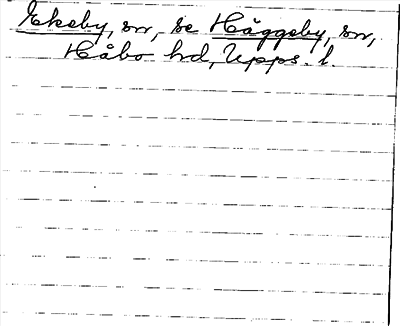 Ekeby, sn, se Häggeby, sn,
Håbo hd, Upps. l.